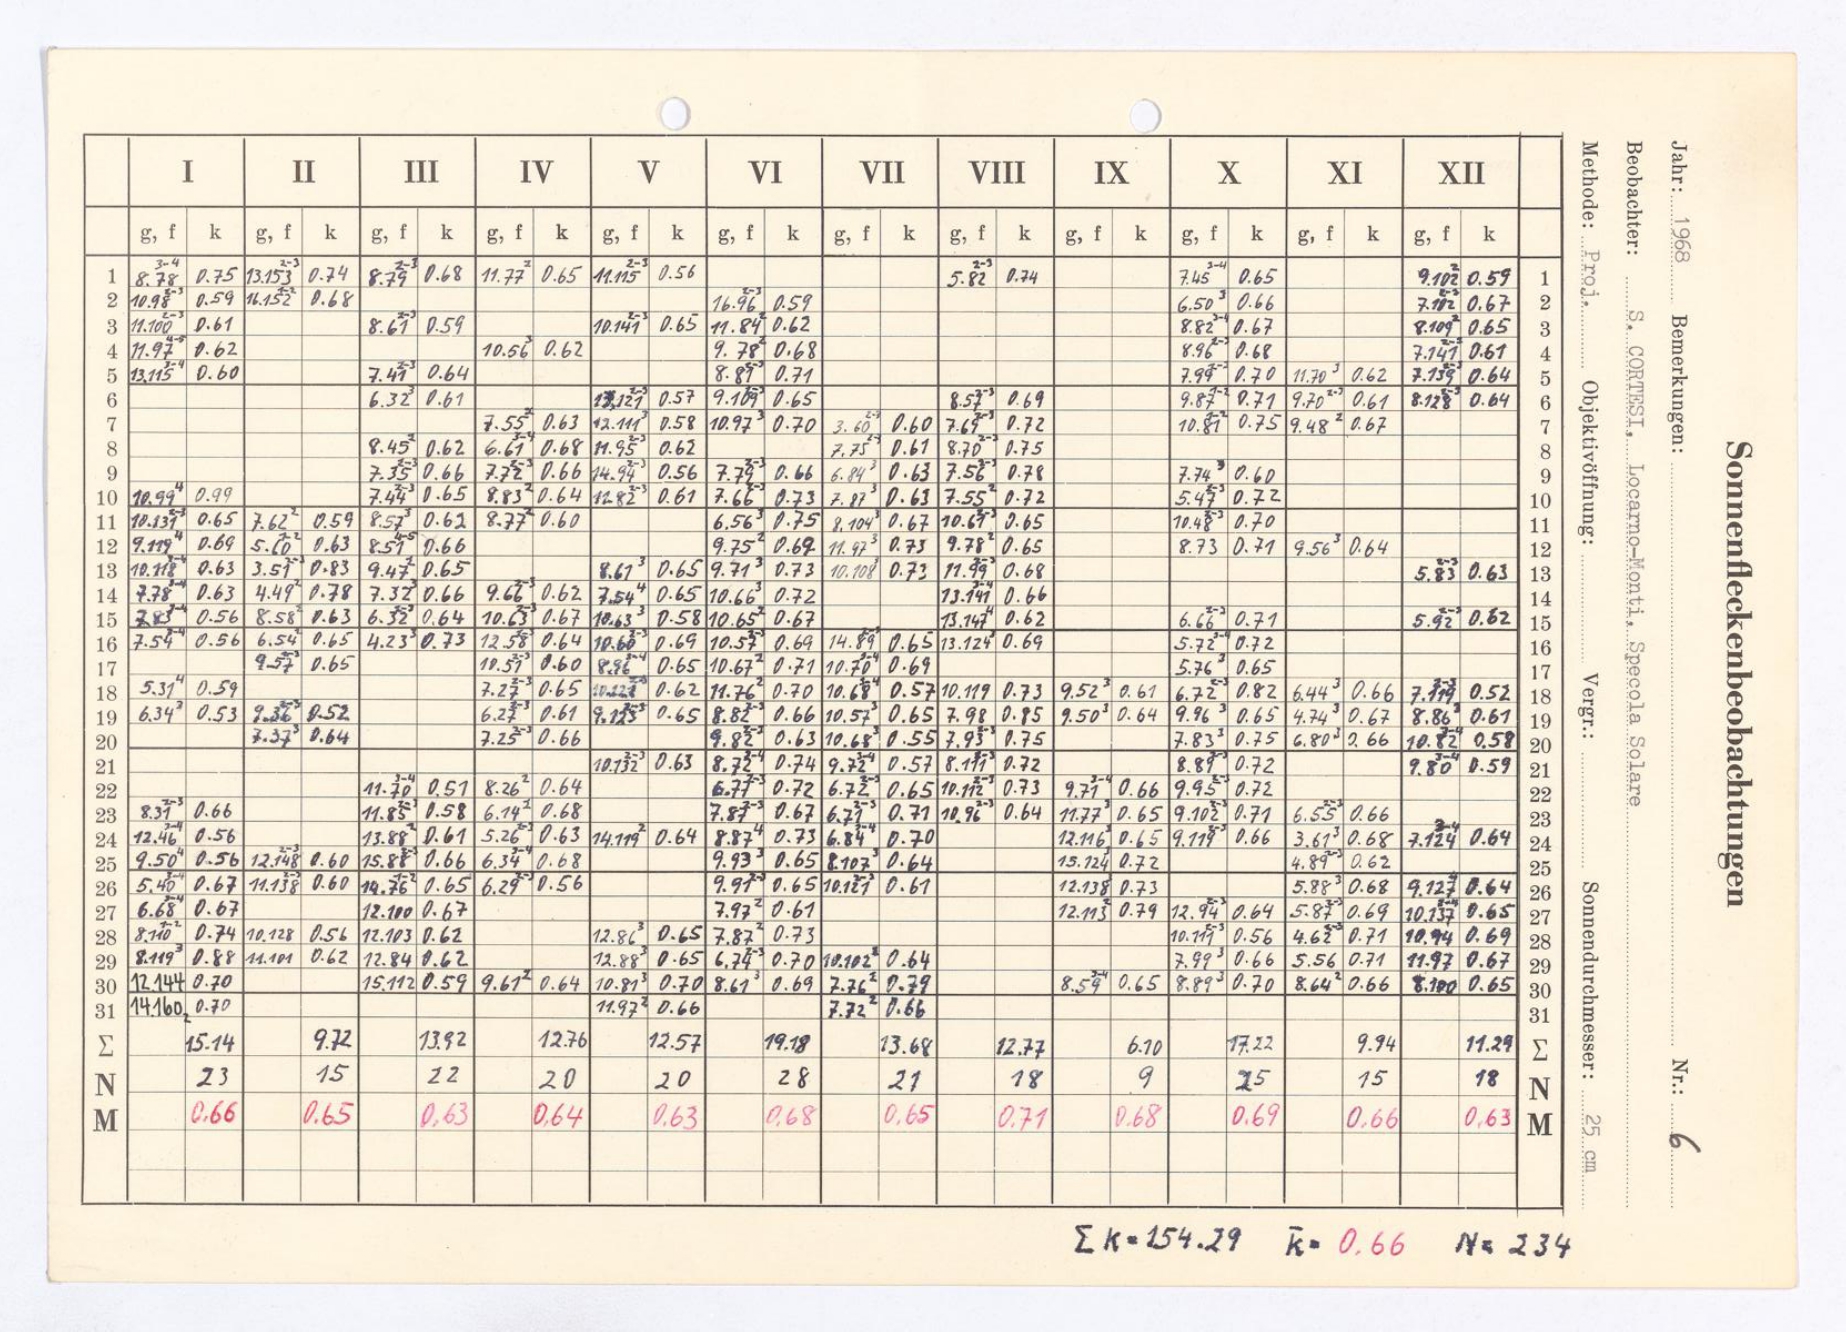 Sonnenfleckenbeobachtungen
Jahr: 1968 Bemerkungen: Nr.: 6
Beobachter: S. CORTESI, Locarno-Monti, Specola Solare
Methode: Proj. Objektivöffnung: Vergr.: Sonnendurchmesser: 25 cm
I II III IV V VI VII VIII IX X XI XII
g, f k g, f k g, f k g, f k g, f k g, f k g, f k g, f k g, f k g, f k g, f k g, f k
1 8.78 3-4 0.75 13.153 2-3 0.74 8.79 2-3 0.68 11.77 2 0.65 11.115 2-3 0.56 5.82 2-3 0.74 7.45 3-4 0.65 9.102 2 0.59 1
2 10.98 2-3 0.59 16.152 2 0.68 16.96 2-3 0.59 6.50 3 0.66 7.102 2-3 0.67 2
3 11.100 2-3 0.61 8.61 2-3 0.59 10.141 2-3 0.65 11.84 2 0.62 8.82 3-4 0.67 8.109 2 0.65 3
4 11.97 4-5 0.62 10.56 3 0.62 9.78 2 0.68 8.96 2-3 0.68 7.141 2 0.61 4
5 13.115 3-4 0.60 7.41 2-3 0.64 8.81 2-3 0.71 7.99 1-2 0.70 11.70 3 0.62 7.139 2-3 0.64 5
6 6.32 3 0.61 0.57 9.109 2-3 0.65 8.57 2-3 0.69 9.87 1-2 0.71 9.70 2-3 0.61 8.128 2-3 0.64 6
7 7.55 2 0.63 12.111 3 0.58 10.97 3 0.70 3.60 2-3 0.60 7.69 2-3 0.72 10.81 1-2 0.75 9.48 2 0.67 7
8 8.45 2 0.62 6.61 3-4 0.68 11.95 2-3 0.62 7.75 2-3 0.61 8.70 2-3 0.75 8
9 7.35 2-3 0.66 7.72 2-3 0.66 14.94 2-3 0.56 7.79 2-3 0.66 6.84 3 0.63 7.56 2-3 0.78 7.74 3 0.60 9
10 10.99 4 0.99 7.44 3 0.65 8.83 2 0.64 11.82 2-3 0.61 7.66 2-3 0.73 7.87 3 0.63 7.55 2 0.72 5.47 2-3 0.72 10
11 10.131 2-3 0.65 7.62 2 0.59 8.57 3 0.62 8.77 2 0.60 6.56 3 0.75 8.104 3 0.67 10.61 2-3 0.65 10.48 3 0.70 11
12 9.119 4 0.69 5.60 2 0.63 8.51 4-5 0.66 9.75 2 0.69 11.97 3 0.73 9.78 2 0.65 8.73 0.71 9.56 3 0.64 12
13 10.118 3-4 0.63 3.51 2-3 0.83 9.47 2 0.65 8.61 3 0.65 9.71 3 0.73 10.108 3 0.73 11.99 2-3 0.68 5.83 2-3 0.63 13
14 7.78 3-4 0.63 4.49 2 0.78 7.32 2 0.66 9.66 2-3 0.62 7.54 4 0.65 10.66 3 0.72 13.141 3-4 0.66 14
15 7.83 3-4 0.56 8.58 2 0.63 6.32 2-3 0.64 10.63 2-3 0.67 10.63 3 0.58 10.65 2 0.67 13.147 4 0.62 6.66 2-3 0.71 5.92 2-3 0.62 15
16 7.54 3-4 0.56 6.54 2 0.65 4.23 3 0.73 12.58 3 0.64 10.60 2-3 0.69 10.57 3 0.69 14.89 3 0.65 13.124 3 0.69 5.72 3-4 0.72 16
17 9.57 2-3 0.65 10.51 2-3 0.60 8.96 3-4 0.65 10.67 2 0.71 10.70 3-4 0.69 5.76 3 0.65 17
18 5.31 4 0.59 7.27 2-3 0.65 0.62 11.76 2 0.70 10.68 3-4 0.57 10.119 0.73 9.52 3 0.61 6.72 2-3 0.82 6.44 3 0.66 7.119 2-3 0.52 18
19 6.34 3 0.53 9.36 2-3 0.52 6.27 2-3 0.61 9.123 2-3 0.65 8.82 2-3 0.66 10.57 3 0.65 7.98 0.85 9.50 3 0.64 9.96 3 0.65 4.74 3 0.67 8.86 3 0.61 19
20 7.37 3 0.64 7.25 2-3 0.66 9.82 2-3 0.63 10.68 3 0.55 7.93 2-3 0.75 7.83 3 0.75 6.80 3 0.66 10.82 3-4 0.58 20
21 10.132 2-3 0.63 8.72 3-4 0.74 9.72 3-4 0.57 8.111 2-3 0.72 8.89 3 0.72 9.80 3-4 0.59 21
22 11.70 3-4 0.51 8.26 2 0.64 6.77 2-3 0.72 6.72 2-3 0.65 10.112 2-3 0.73 9.71 3-4 0.66 9.95 2-3 0.72 22
23 8.31 2-3 0.66 11.85 2-3 0.58 6.14 2 0.68 7.87 2-3 0.67 6.71 2-3 0.71 10.96 2-3 0.64 11.77 3 0.65 9.102 2-3 0.71 6.55 2-3 0.66 23
24 12.46 3-4 0.56 13.88 2 0.61 5.26 2-3 0.63 14.119 2 0.64 8.87 4 0.73 6.84 3-4 0.70 12.116 3 0.65 9.119 2-3 0.66 3.61 3 0.68 7.124 3-4 0.64 24
25 9.50 4 0.56 12.148 2-3 0.60 15.88 2-3 0.66 6.34 3-4 0.68 9.93 3 0.65 8.107 3 0.64 15.124 0.72 4.89 2-3 0.62 25
26 5.40 3-4 0.67 11.138 2-3 0.60 14.76 1-2 0.65 6.29 2-3 0.56 9.91 2-3 0.65 10.121 3 0.61 12.138 3 0.73 5.88 3 0.68 9.127 4 0.64 26
27 6.68 3-4 0.67 12.100 0.67 7.97 2 0.61 12.113 2 0.79 12.94 2-3 0.64 5.87 2-3 0.69 10.137 3-4 0.65 27
28 8.110 1-2 0.74 10.128 0.56 12.103 0.62 12.86 3 0.65 7.87 2 0.73 10.111 2-3 0.56 4.62 2-3 0.71 10.94 0.69 28
29 8.119 3 0.88 11.101 0.62 12.84 0.62 12.88 3 0.65 6.74 2-3 0.70 10.102 2 0.64 7.99 3 0.66 5.56 0.71 11.97 0.67 29
30 12.144 0.70 15.112 0.59 9.61 2 0.64 10.81 3 0.70 8.61 3 0.69 7.76 2 0.79 8.59 3-4 0.65 8.89 3 0.70 8.64 2 0.66 8.100 0.65 30
31 14.160 2 0.70 11.97 2 0.66 7.72 2 0.66 31
Σ 15.14 9.72 13.92 12.76 12.57 19.18 13.68 12.77 6.10 17.22 9.94 11.29 Σ
N 23 15 22 20 20 28 21 18 9 25 15 18 N
M 0.66 0.65 0.63 0.64 0.63 0.68 0.65 0.71 0.68 0.69 0.66 0.63 M
Σ k = 154.29 k̄ = 0.66 N = 234